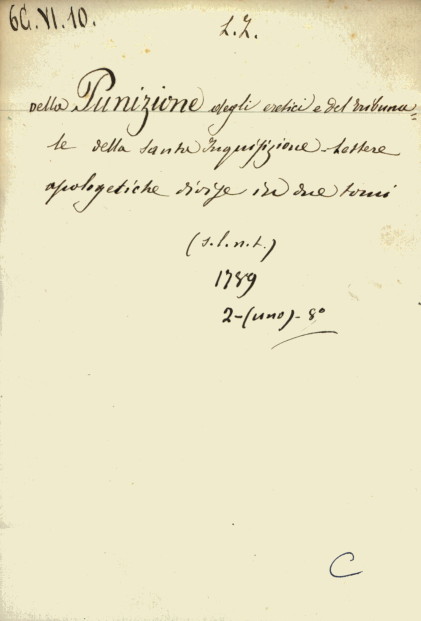 6C.VI.10.
L.Z.
della Punizione degli eretici e del tribuna=
le della santa Inquisizione - Lettere
apologetiche divise in due tomi
(s.l.n.t.)
1789
2-(uno)-8°
C